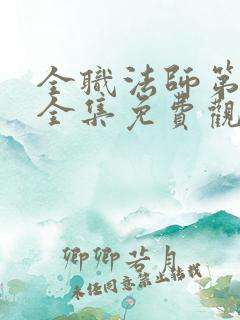 全職法師第
全集免費觀
卿卿若月
未经同意禁止转载